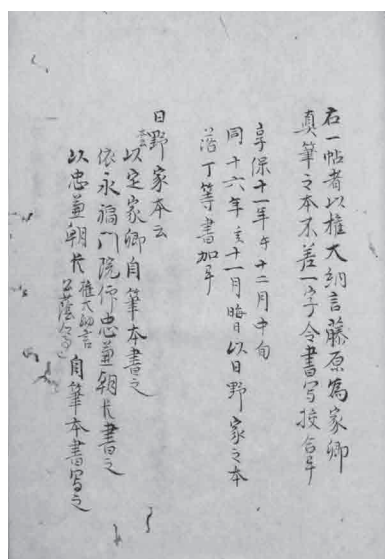 右一帖者以権大納言藤原為家卿
真筆之本不差一字令書写挍合畢
享保十一年午十二月中旬
同十六年亥十一月晦日以日野家之本
落丁等書加畢
日野家本云
以定家卿自筆本書之
依永福門院仰忠兼朝臣書之
以忠兼朝臣権大納言公蔭卿也自筆本書写之